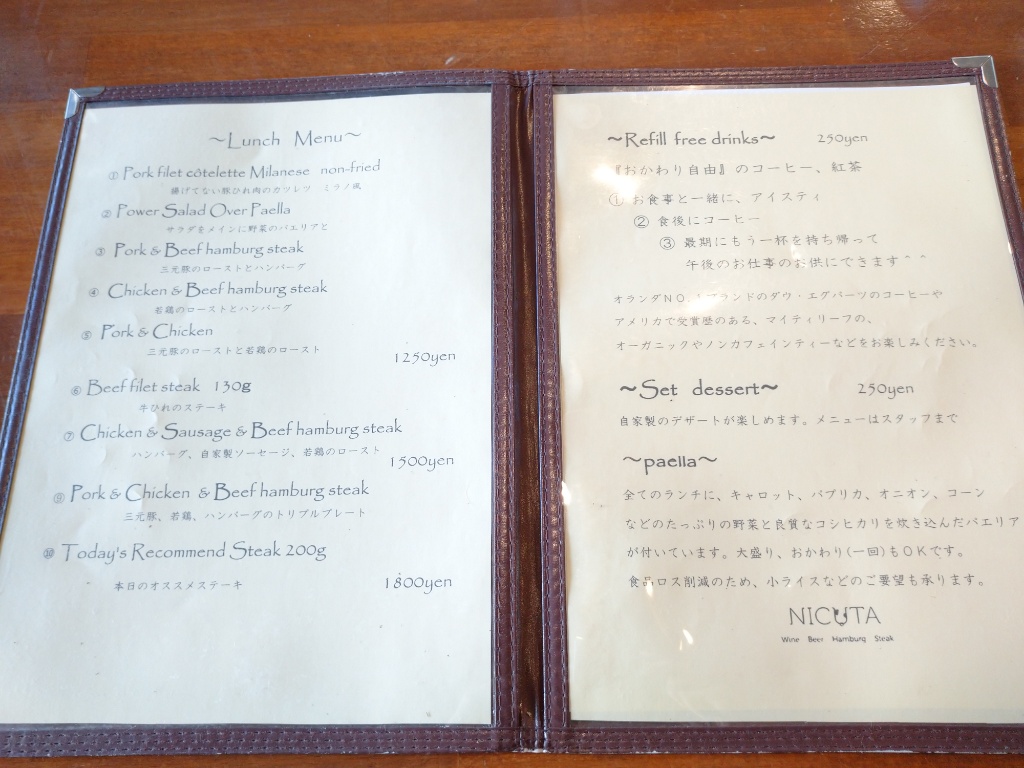 ～Lunch Menu～
① Pork filet côtelette Milanese non-fried
揚げてない豚ひれ肉のカツレツ ミラノ風
② Power Salad Over Paella
サラダをメインに野菜のパエリアと
③ Pork & Beef hamburg steak
三元豚のローストとハンバーグ
④ Chicken & Beef hamburg steak
若鶏のローストとハンバーグ
⑤ Pork & Chicken
三元豚のローストと若鶏のロースト
1250yen
⑥ Beef filet steak 130g
牛ひれのステーキ
⑦ Chicken & Sausage & Beef hamburg steak
ハンバーグ、自家製ソーセージ、若鶏のロースト
1500yen
Pork & Chicken & Beef hamburg steak
三元豚、若鶏、ハンバーグのトリプルプレート
⑩ Today's Recommend Steak 200g
本日のオススメステーキ
1800yen
～Refill free drinks～ 250yen
『おかわり自由』のコーヒー、紅茶
① お食事と一緒に、アイスティ
② 食後にコーヒー
③ 最期にもう一杯を持ち帰って
午後のお仕事のお供にできます＾＾
オランダＮＯ.１ブランドのダウ・エグバーツのコーヒーや
アメリカで受賞歴のある、マイティリーフの、
オーガニックやノンカフェインティーなどをお楽しみください。
～Set dessert～ 250yen
自家製のデザートが楽しめます。メニューはスタッフまで
～paella～
全てのランチに、キャロット、パプリカ、オニオン、コーン
などのたっぷりの野菜と良質なコシヒカリを炊き込んだパエリア
が付いています。大盛り、おかわり(一回)もＯＫです。
食品ロス削減のため、小ライスなどのご要望も承ります。
NICUTA
Wine Beer Hamburg Steak